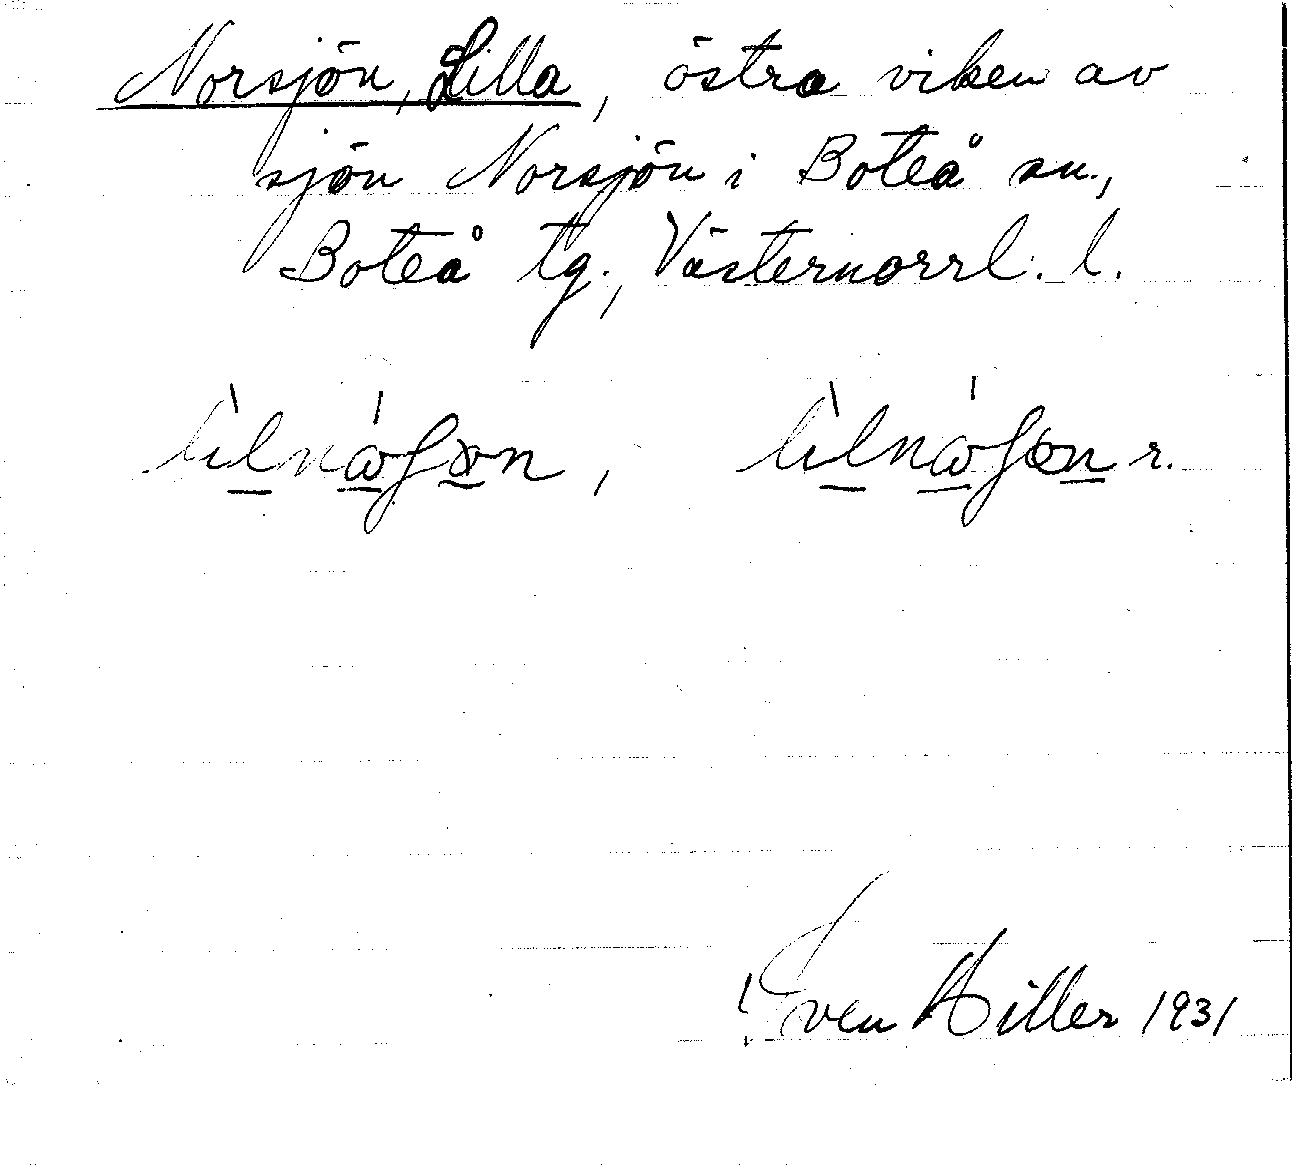 Norsjön, Lilla, östra viken av
sjön Norsjön i Boteå sn.,
Boteå tg., Västernorrl. l.
! Sven Hiller 1931